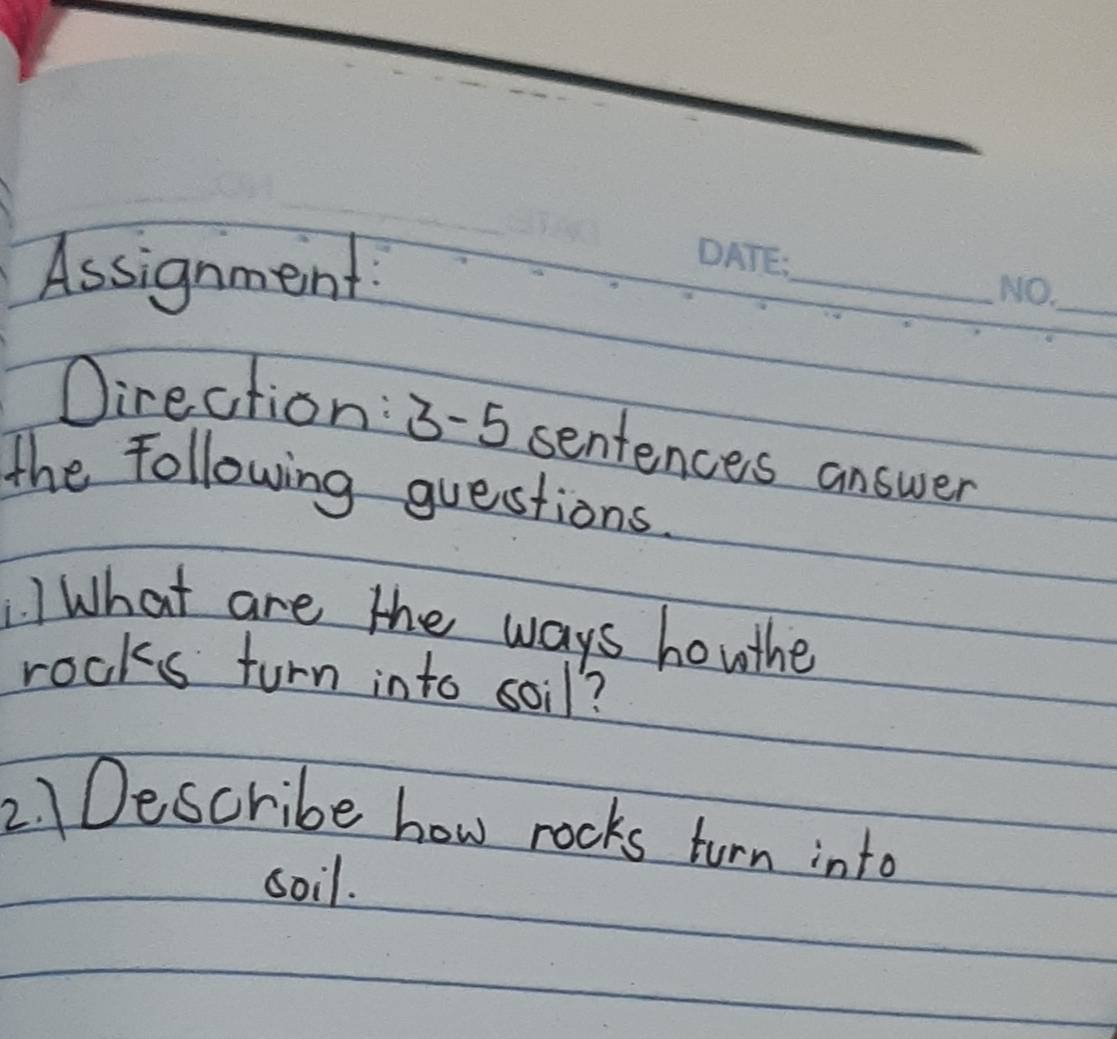 DATE:
NO.
Assignment:
Direction: 3-5 sentences answer
the following questions.
1.) What are the ways how the
rocks turn into soil?
2.) Describe how rocks turn into
soil.